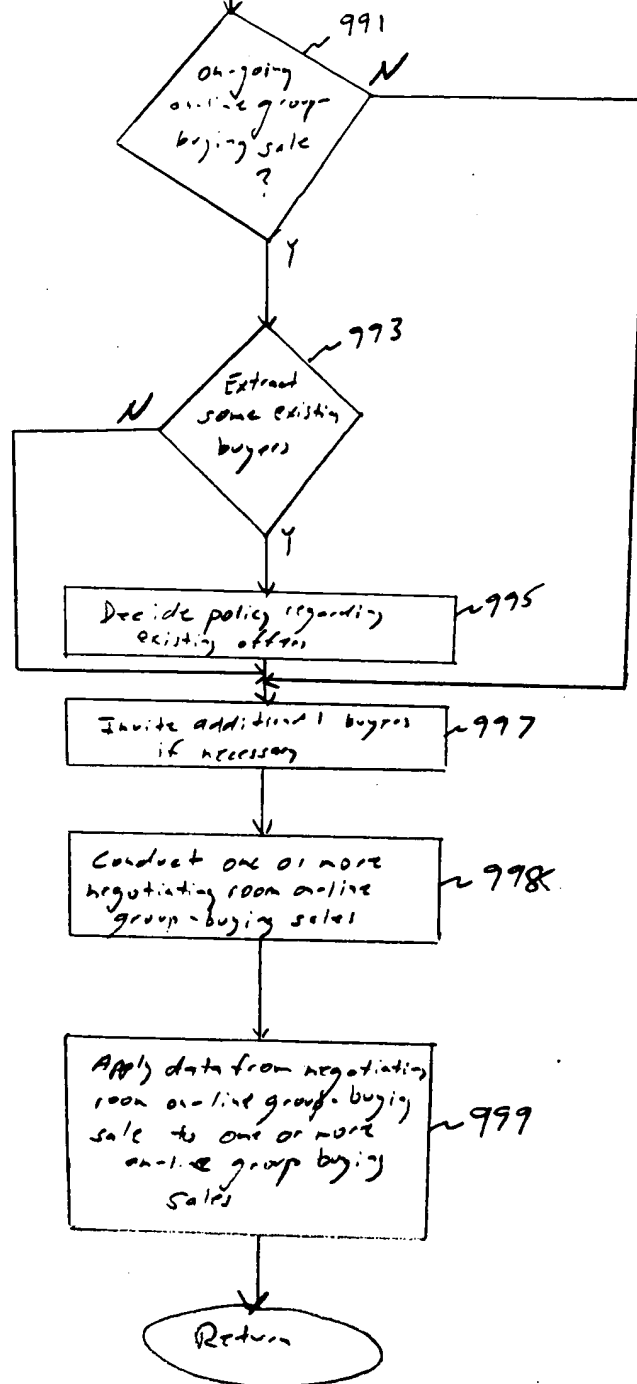 991
on-going
on-line group-
buying sale
?
N
Y
993
Extract
some existing
buyers
N
Y
Decide policy regarding
existing offers
995
Invite additional buyers
if necessary
997
Conduct one or more
negotiating room on-line
group-buying sales
998
Apply data from negotiating
room on-line group-buying
sale to one or more
on-line group buying
sales
999
Return